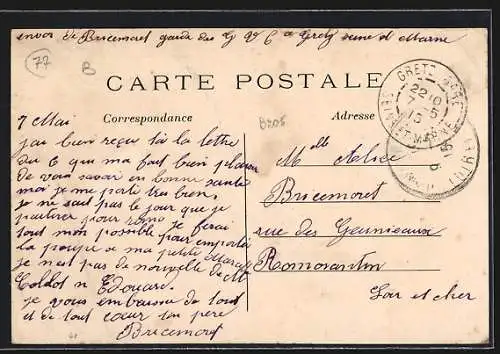 envoi de Bricemoret garde des G V C a Gretz seine et Marne
77
B
CARTE POSTALE
Correspondance
Adresse
B205
GRETZ GARE
22 10
7 - 5
15
SEINE-ET-MARNE
7 Mai
jai bien reçu ta la lettre
du 6 qui ma fait bien plaisir
de vous savoir en bonne santé
moi je me porte tres bien.
je ne sait pas le jour que je
partirer pour romo je ferai
tout mon possible pour emporter
la poupé a ma petite
je nest pas de nouvelle de
n Edouard.
je vous embrasse de tout
et de tout cœur ton pere
Bricemoret
Mlle Alice
Bricemoret
rue des
Romorantin
Loir et cher